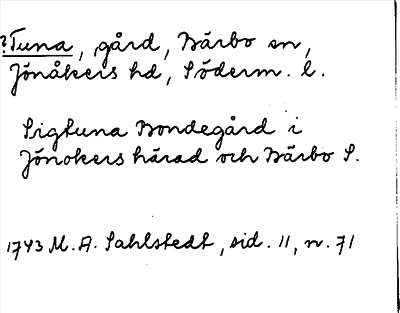 ?Tuna, gård, Bärbo sn,
Jönåkers hd, Söderm. l.
Sigtuna Bondegård i
Jönokers härad och Bärbo S.
1743 M. A. Sahlstedt, sid. 11, n. 71